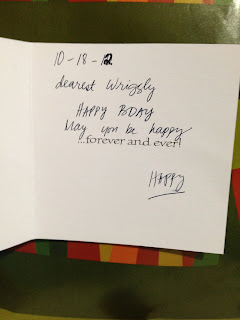 10-18-12
dearest Wriggly
HAPPY BDAY
May you be happy
...forever and ever!
HAPPY